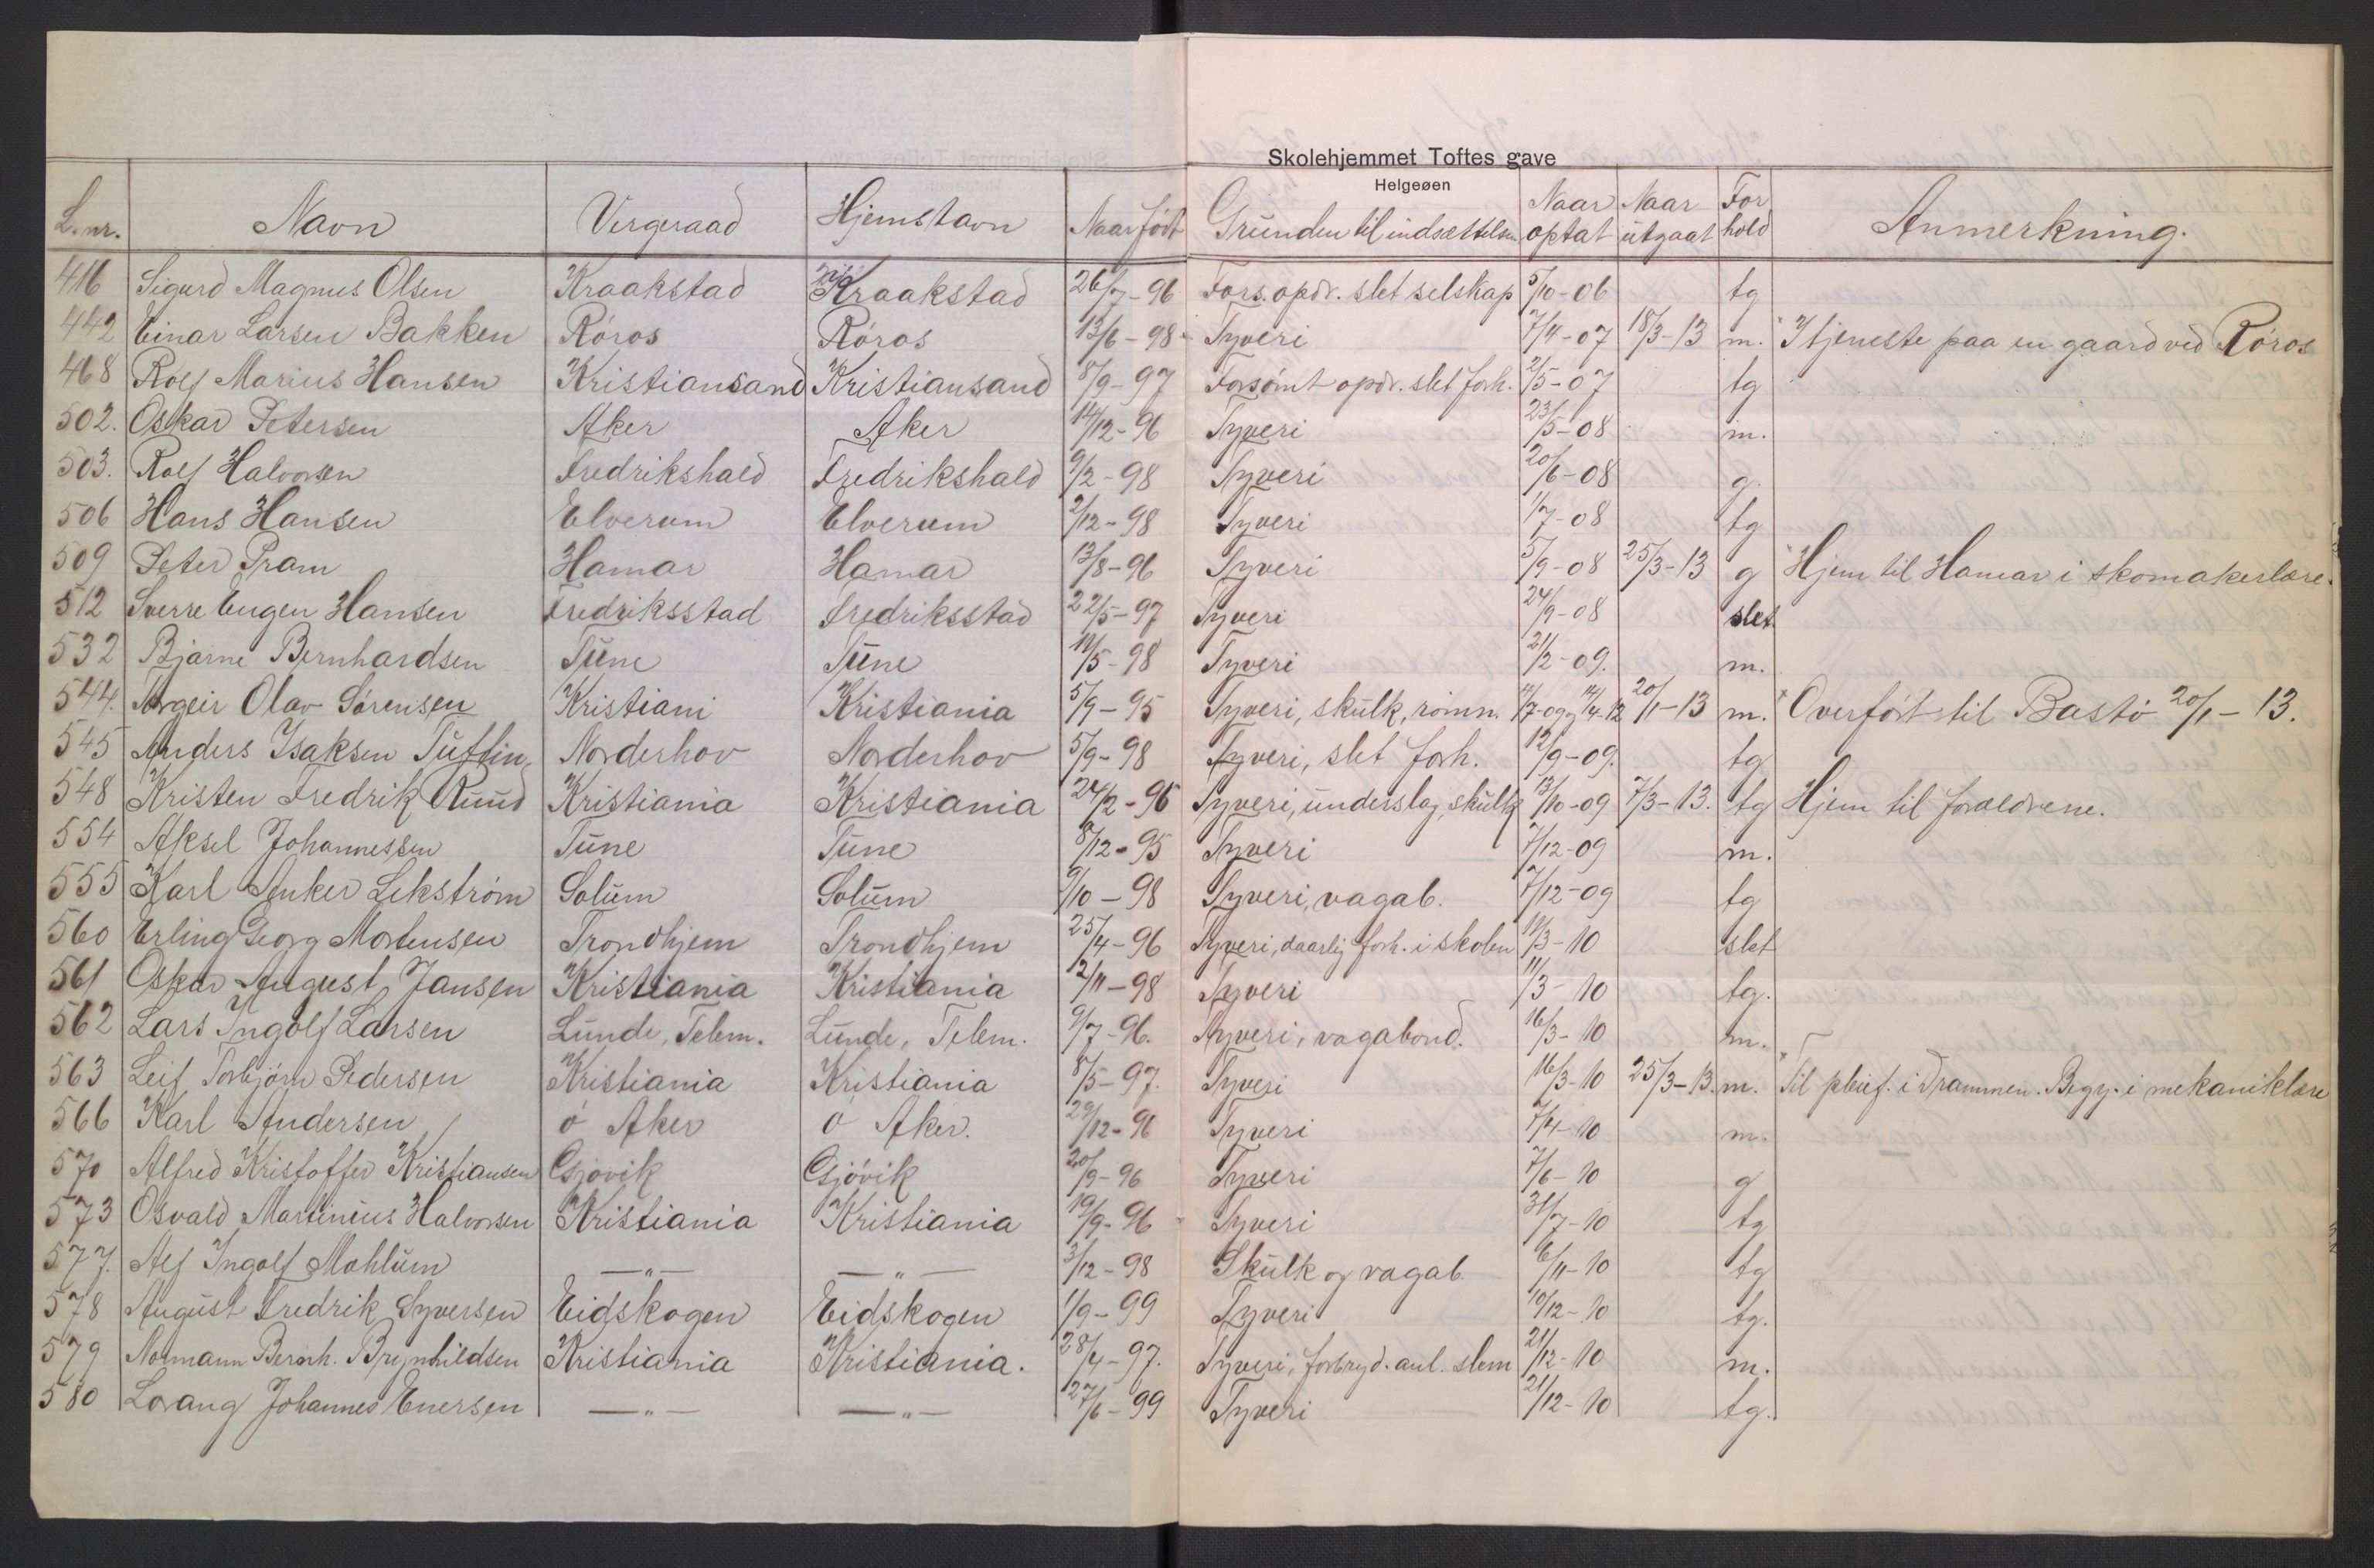 Skolehjemmet Toftes gave
Helgeøen
L. nr. Navn Vergeraad Hjemstavn Naar født Grunden til indsættelsen Naar optat Naar utgaat Forhold Anmerkning.
416 Sigurd Magnus Olsen Kraakstad Kraakstad 26/7-96 Fors. opdr. slet selskap 5/10-06 tg
442 Einar Larsen Bakken Röros Röros 13/6-98 Tyveri 7/11-07 18/3-13 m. I tjeneste paa en gaard ved Röros
468 Rolf Marius Hansen Kristiansand Kristiansand 8/9-97 Forsömt opdr. slet forh. 2/5-07 tg
502. Oskar Petersen Aker Aker 14/12-96 Tyveri 23/5-08 m.
503. Rolf Halvorsen Fredrikshald Fredrikshald 9/2-98 Tyveri 20/6-08 g.
506 Hans Hansen Elverum Elverum 2/12-98 Tyveri 1/7-08 tg
509 Peter Pram Hamar Hamar 13/8-96 Tyveri 5/9-08 25/3-13 g Hjem til Hamar i skomakerlære.
512 Sverre Eugen Hansen Fredriksstad Fredriksstad 22/5-97 Tyveri 24/9-08 slet
532 Bjarne Bernhardsen Tune Tune 11/5-98 Tyveri 21/2-09. m.
544. Torgeir Olav Sörensen Kristiani Kristiania 5/9-95 Tyveri, skulk, römn. 14/7-09 og 14/4-12 20/1-13 m. Overfört til Bastö 20/1-13.
545 Anders Isaksen Norderhov Norderhov 5/9-98 Tyveri, slet forh. 12/9-09. tg
548 Kristen Fredrik Ruud Kristiania Kristiania 24/2-96 Tyveri, underslag, skulk 13/10-09 7/3-13. tg Hjem til forældrene.
554 Aksel Johannessen Tune Tune 8/12-95 Tyveri 7/12-09 m.
555 Karl Anker Lekström Solum Solum 9/10-98 Tyveri, vagab. 7/12-09 tg
560 Erling Georg Mortensen Trondhjem Trondhjem 25/4-96 Tyveri, daarlig forh. i skolen 10/3-10 slet
561 Oskar August Jansen Kristiania Kristiania 2/11-98 Tyveri 11/3-10 tg.
562 Lars Ingolf Larsen Lunde, Telem. Lunde, Telem. 9/7-96. Tyveri, vagabond. 16/3-10 m.
563 Leif Torbjörn Pedersen Kristiania Kristiania 8/5-97. Tyveri 16/3-10 25/3-13. m. Til pleief. i Drammen. Begy. i mekaniklære
566 Karl Andersen ö Aker ö Aker. 29/12-96 Tyveri 7/4-10 m.
570 Alfred Kristoffer Kristiansen Gjövik Gjövik 20/9-96 Tyveri 7/6-10 g
573 Osvald Martinius Halvorsen Kristiania Kristiania 19/9-96 Tyveri 31/7-10 tg
577. Alf Ingolf Mohlum —„— —„— 3/12-98 Skulk og vagab. 6/11-10 tg
578 August Fredrik Syversen Eidskogen Eidskogen 1/9-99 Tyveri 10/12-10 tg.
579 Normann Bernh. Brynhildsen Kristiania Kristiania. 28/4-97. Tyveri, forbryd. anl. slem 21/12-10 m.
580 Lorang Johannes Enersen —„— —„— 27/6-99 Tyveri 21/12-10 tg.